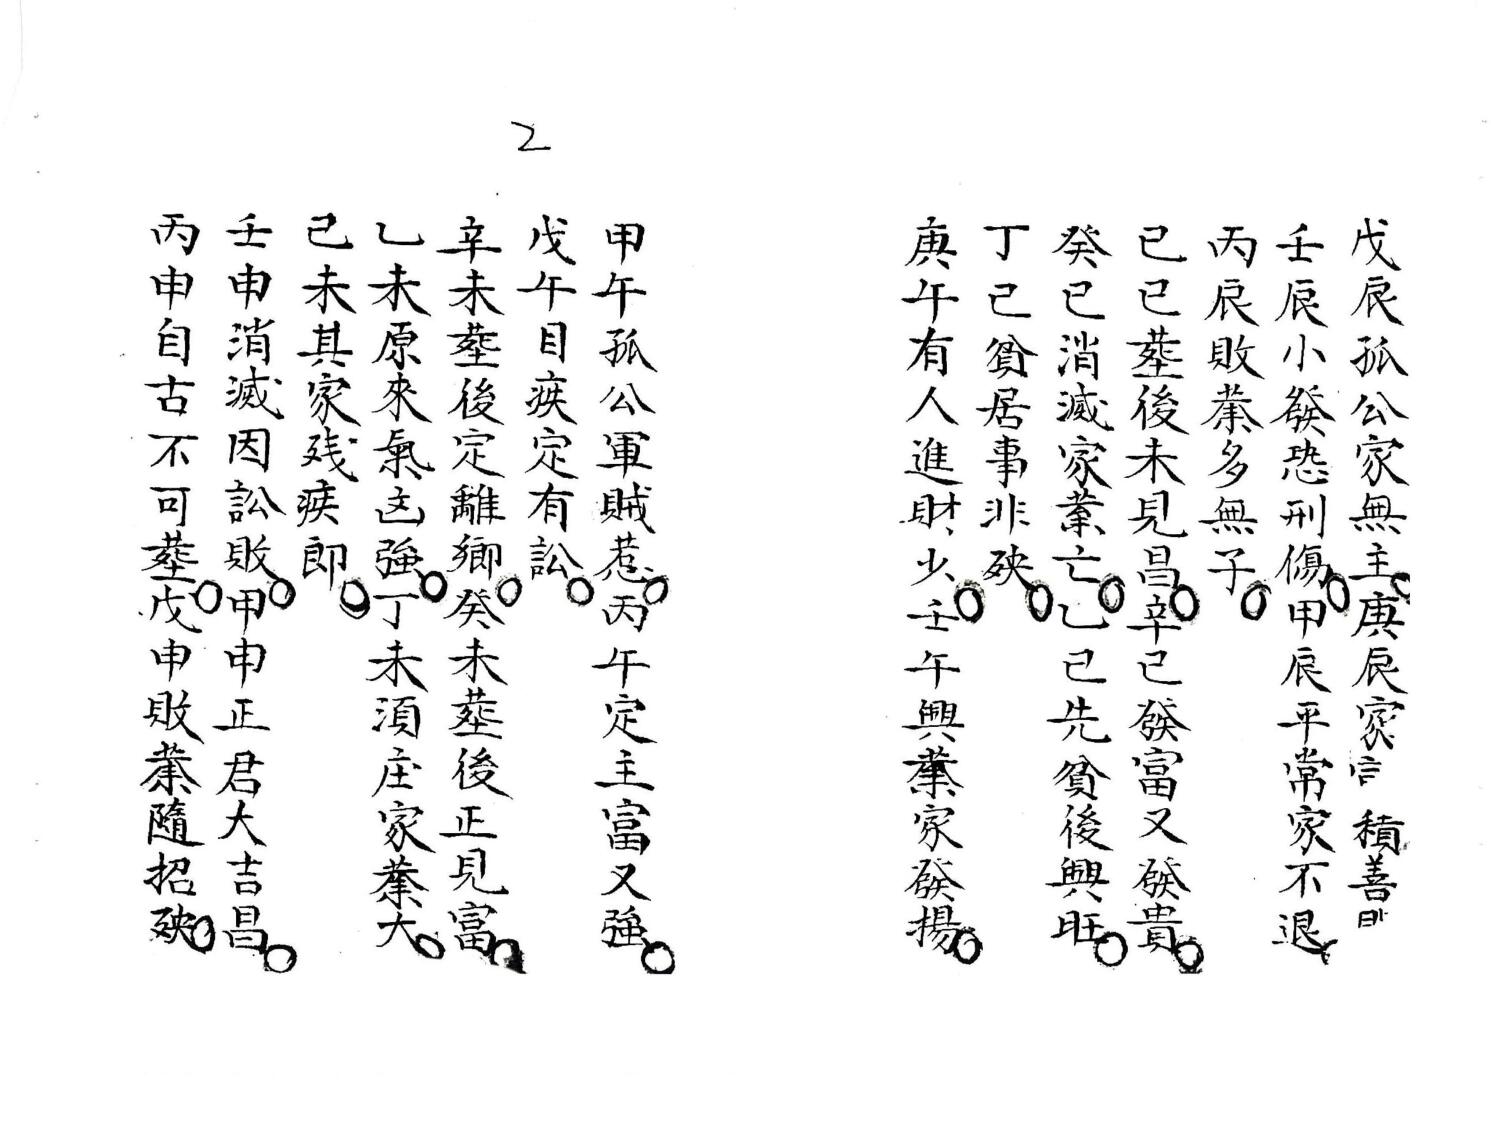 2
戊辰孤公家無主庚辰家積善
壬辰小發恐刑傷甲辰平常家不退
丙辰敗業多無子
己巳塟後未見昌辛巳發富又發貴
癸巳消滅家業亡乙巳先貧後興旺
丁巳貧居事非殃
庚午有人進財少壬午興業家發揚
甲午孤公軍賊惹丙午定主富又強
戊午目疾定有訟
辛未塟後定離鄉癸未塟後正見富
乙未原來氣必強丁未須庄家業大
己未其家残疾郎
壬申消滅因訟敗甲申正君大吉昌
丙申自古不可塟戊申敗業隨招殃